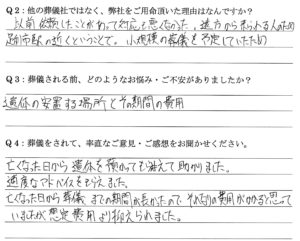 Q2：他の葬儀社ではなく、弊社をご用命頂いた理由はなんですか？
以前依頼したことがあって対応も悪くなかった。遠方から来られる人のため
駅の近くということで。小規模の葬儀を予定していたため
Q3：葬儀される前、どのようなお悩み・ご不安がありましたか？
遺体の安置する場所とその期間の費用
Q4：葬儀をされて、率直なご意見・ご感想をお聞かせください。
亡くなった日から遺体を預かってもらえて助かりました。
適度なアドバイスをもらえました。
亡くなった日から葬儀までの期間が長かったので それなりの費用がかかると思って
いましたが想定費用より抑えられました。